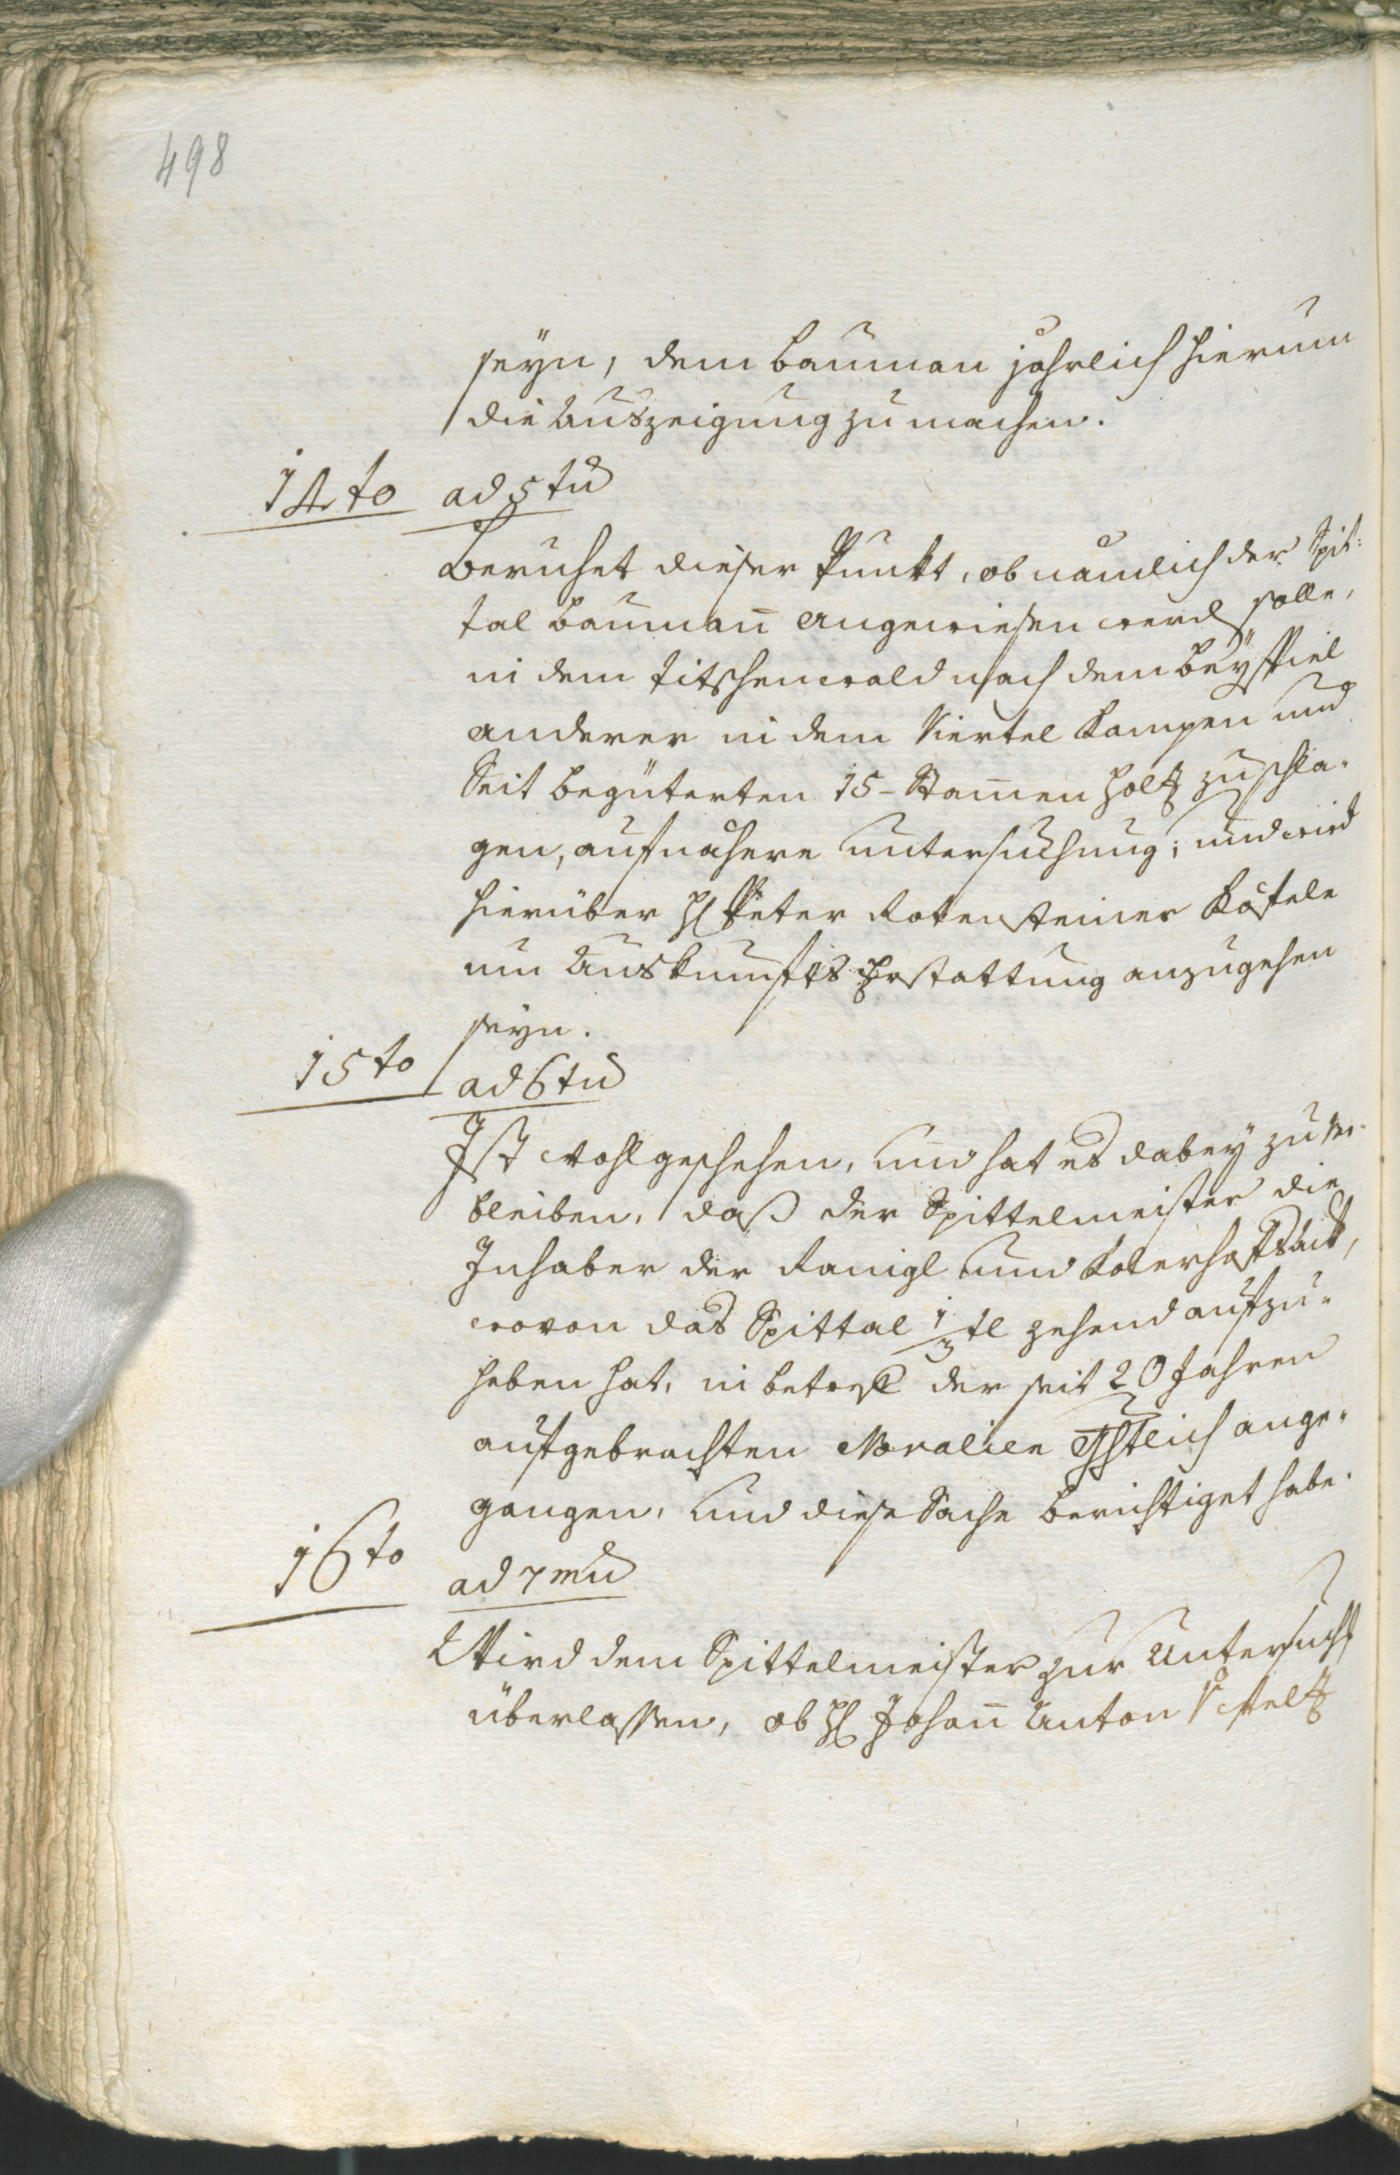 498
seyn, dem Bauman jährlich hierum
die Auszeigung zu machen.
14to ad 5tū
Beruhet dieser Punkt, ob namlich der Spit:
tal Baumañ angewiesen werd solle,
in dem Titschenwald nach dem Beÿspiel
anderer in dem Viertel Kampen und
Seit begüterten 15 - Stam̄en Holtz zu schla-
gen, auf nähere Untersuchung; und wird
hierüber H Peter Rotensteiner Kößele
um Auskunfts Erstattung anzugehen
seyn.
15to ad 6tū
Ist wohl geschehen, und hat es dabeÿ zu ver-
bleiben, daß der Spittelmeister die
Inhaber der Ranigl und
wovon das Spittal 1/3tl zehend aufzu-
heben hat, in betref der seit 20 Jahren
aufgebrachten Novalien ange-
gangen, und diese Sache berichtiget habe.
16to ad 7mū
Wird dem Spittelmeister zur Untersuch
überlassen, ob H Johañ Anton